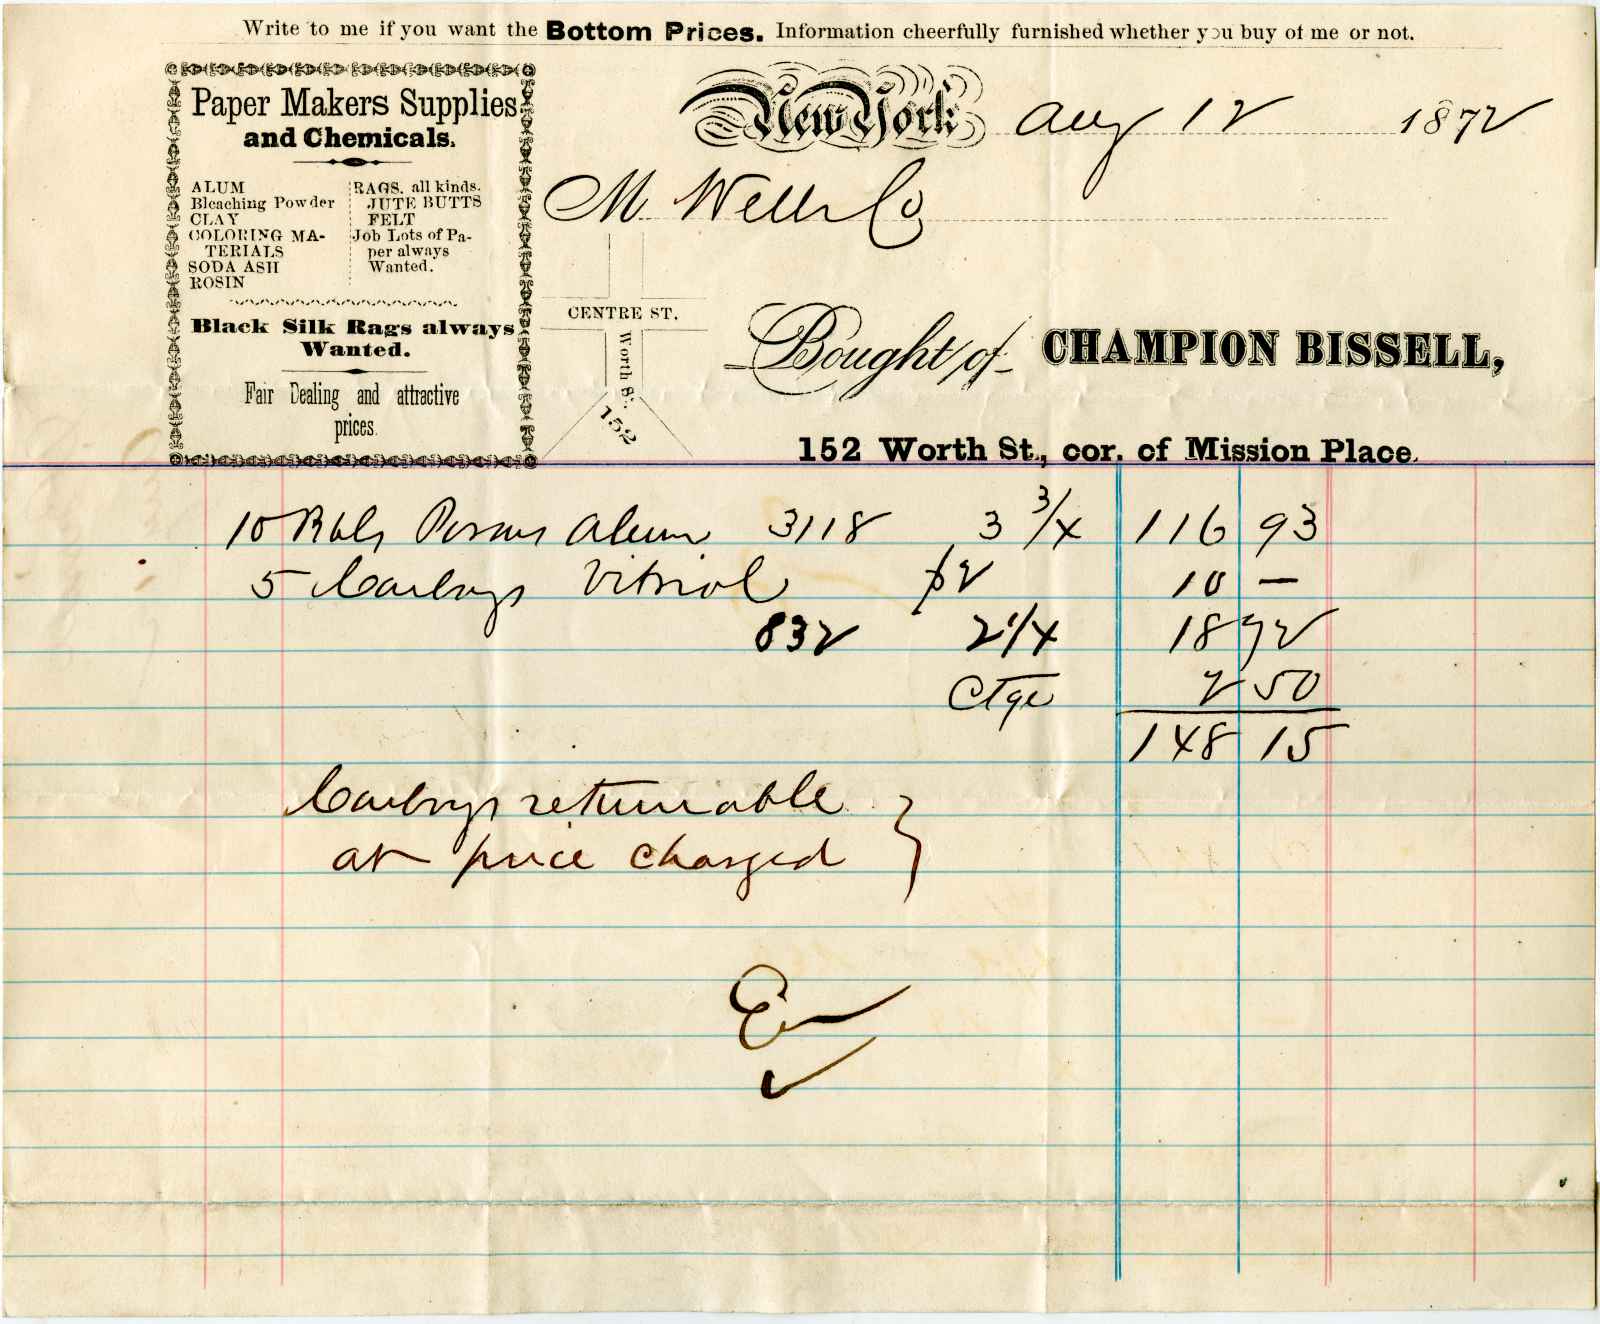 Write to me if you want the Bottom Prices. Information cheerfully furnished whether you buy of me or not.
Paper Makers Supplies
and Chemicals.
ALUM
Bleaching Powder
CLAY
COLORING MA-
TERIALS
SODA ASH
ROSIN
RAGS. all kinds.
JUTE BUTTS
FELT
Job Lots of Pa-
per always
Wanted.
Black Silk Rags always
Wanted.
Fair Dealing and attractive
prices.
New York Aug 12 1872
M Wells Co
CENTRE ST.
Worth St.
152
Bought of CHAMPION BISSELL,
152 Worth St., cor. of Mission Place.
10 Bbls Porous Alum 3118 3 3/4 116 93
5 Carboys Vitriol $2 10 —
832 2 1/4 18 72
Ctge 2 50
148 15
Carboys returnable
at price charged